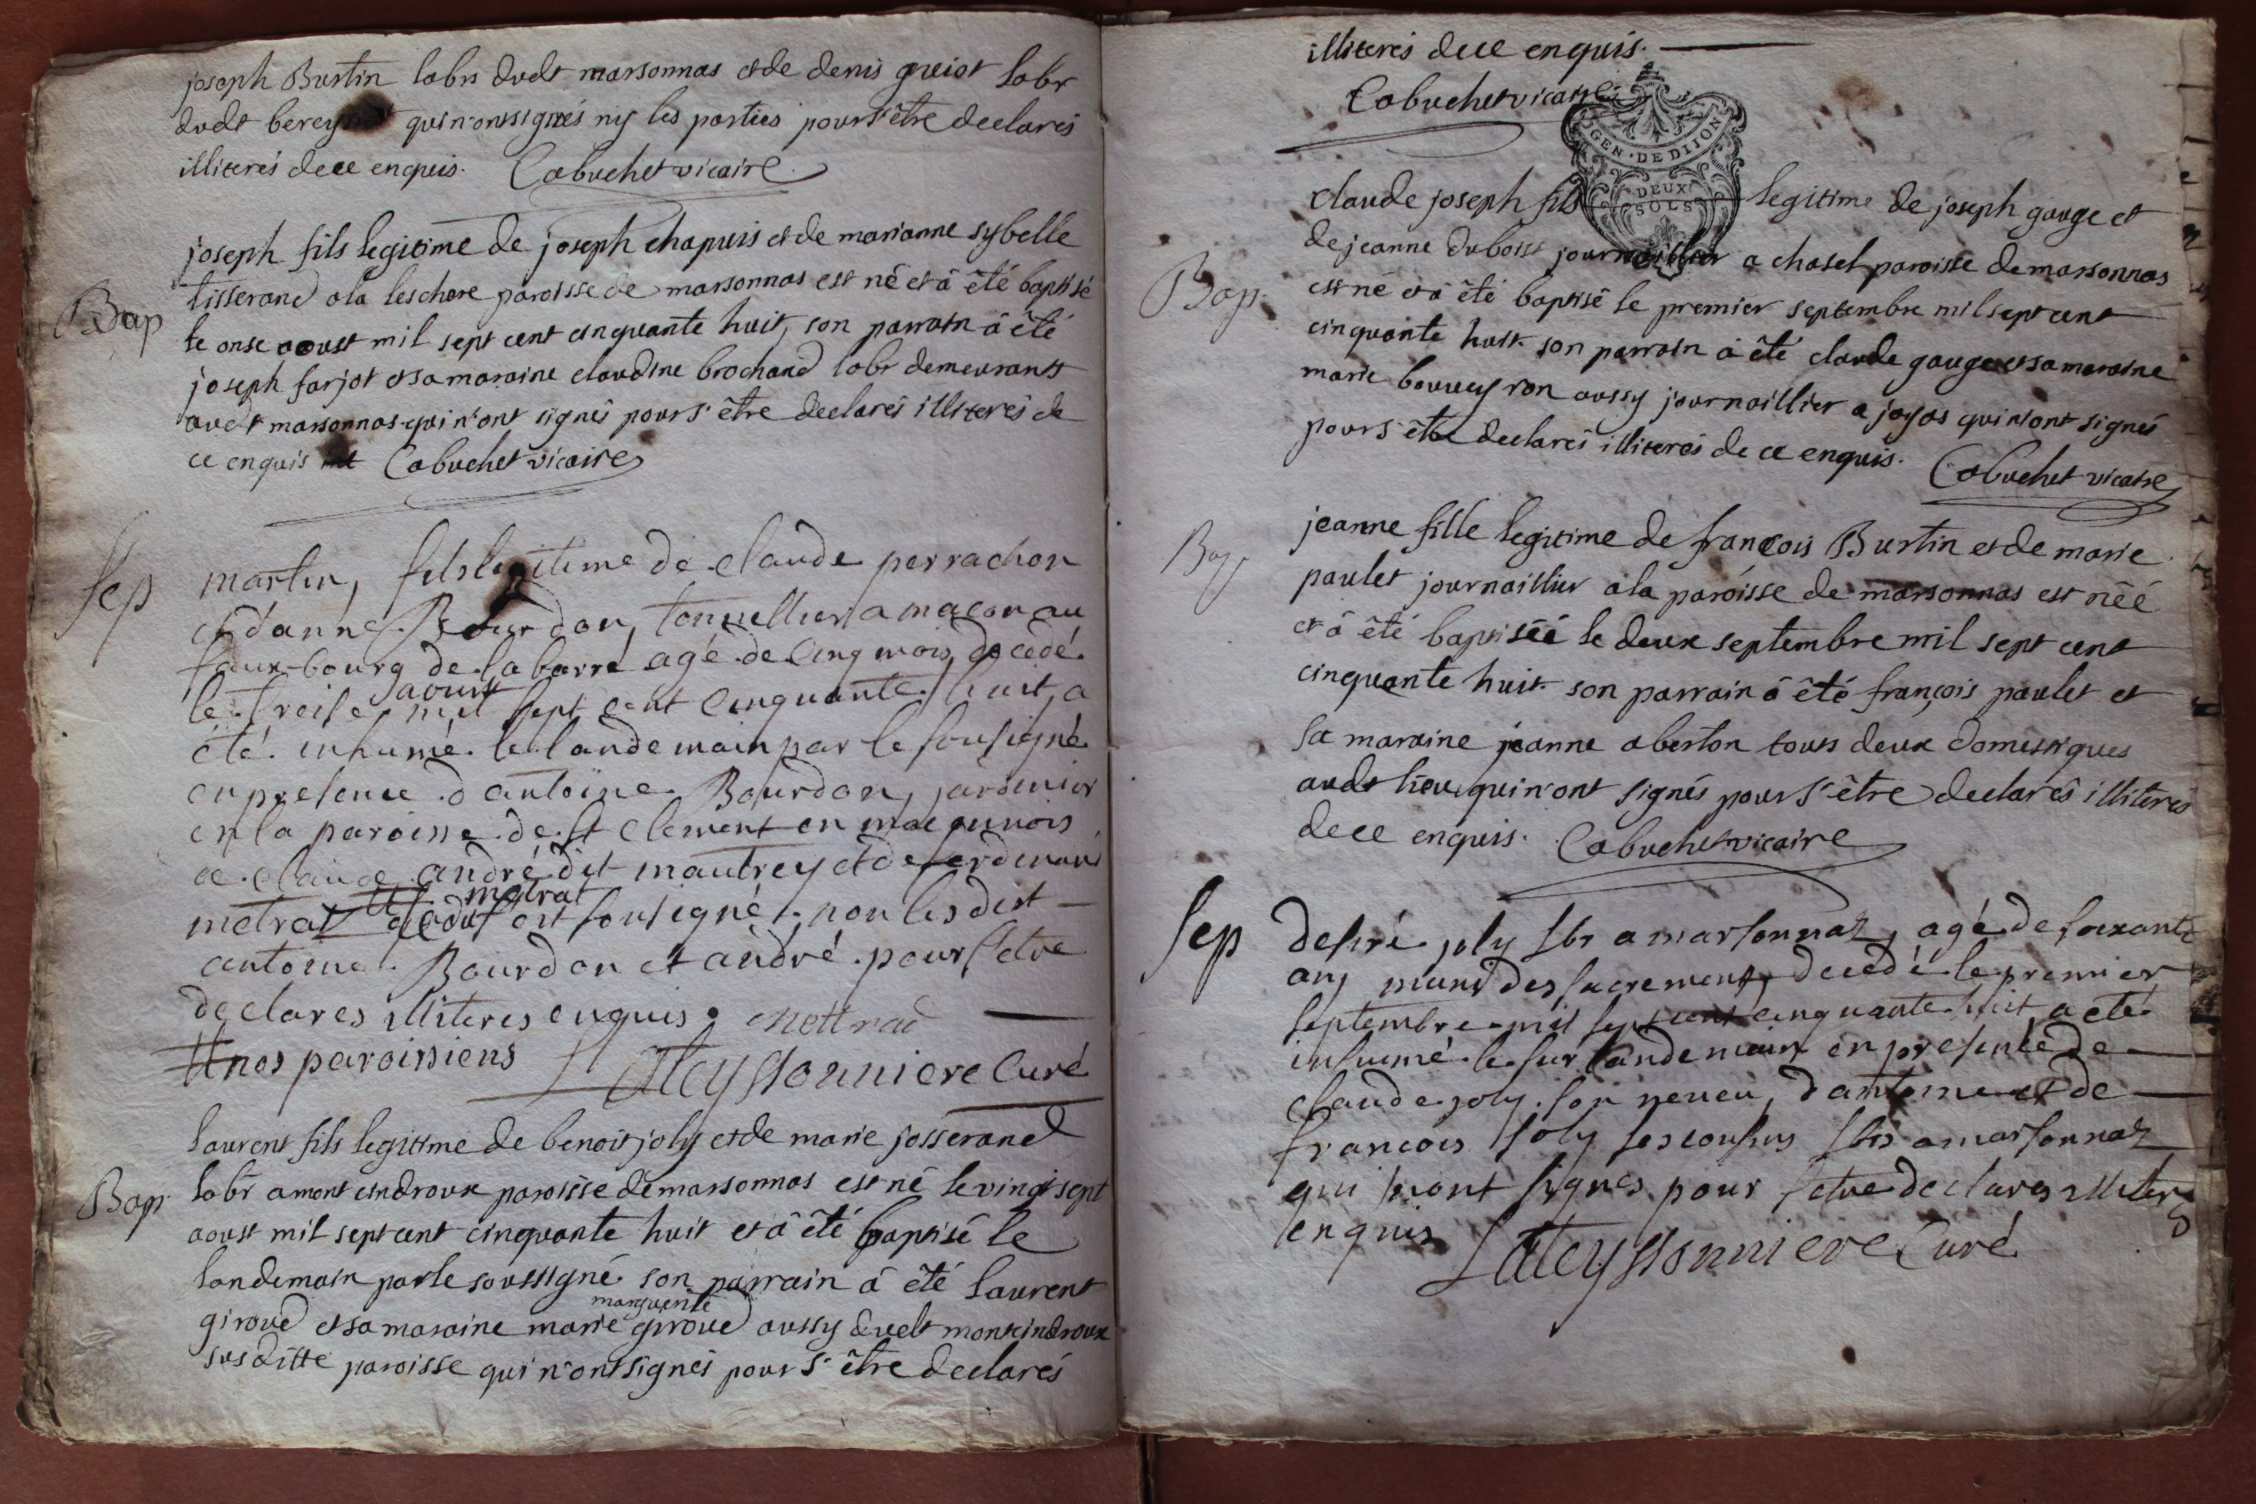 joseph Burtin labrs dudt marsonnas et de denis guiot labr
dudt berey qui n'ont signés ny les parties pour s'être declarés
illiterés de ce enquis. Cabuchet vicaire
joseph fils legitime de joseph chapuis et de marianne sybelle
Bap
tisserand a la leschere paroisse de marsonnas est né et â êté baptisé
le onse aoust mil sept cent cinquante huit, son parrain â êté
joseph farjot et sa maraine claudine brochand labr demeurants
audt marsonnas qui n'ont signés pour s'être declarés illiterés de
ce enquis Cabuchet vicaire
Sep
martin, fils legitime de claude perrachon
et d'anne Bourdon, tonnellier a macon au
faux-bourg de la barre agé de cinq mois, decedé
le treise aoust mil sept cent cinquante huit, a
été inhumé le landemain par le sousigné
en presence d'antoine Bourdon, jardinier
en la paroisse de st clement en maconnois
de claude andré dit mautrey et de
metrat metrat sousigné, non lesdist
antoine Bourdon et andré pour s'etre
declares illiteres enquis.
nos paroissiens Lateyssonniere Curé
laurent fils legitime de benoit joly et de marie josserand
Bap
labr a mont cindroux paroisse de marsonnas est né le vingt sept
aoust mil sept cent cinquante huit et â êté baptisé le
landemain par le soussigné son parrain â êté laurent
marguerite
giroud et sa maraine marie giroud aussy dudt montcindroux
susditte paroisse qui n'ont signés pour s'être declarés
illiterés de ce enquis.
Cabuchet vicaire
GEN. DE DIJON
DEUX
SOLS
claude joseph fils legitime de joseph gauge et
de jeanne dubost journaillier a chasel paroisse de marsonnas
Bap.
est né et â êté baptisé le premier septembre mil sept cent
cinquante huit. son parrain â êté claude gauge et sa maraine
marie bouveyron aussy journaillier a jayas qui n'ont signés
pour s'être declarés illiterés de ce enquis.
Cabuchet vicaire
jeanne fille legitime de françois Burtin et de marie
Bap
paulet journaillier a la paroisse de marsonnas est nêé
et â êté baptiséé le deux septembre mil sept cent
cinquante huit. son parrain â êté françois paulet et
sa maraine jeanne aberton touts deux domestiques
audt lieu qui n'ont signés pour s'être declarés illiterés
de ce enquis. Cabuchet vicaire
Sep
desiré joly lbr a marsonnaz, agé de soixante
ans muni des sacrements, decedé le premier
septembre mil sept cent cinquante huit, a eté
inhumé le surlandemain en presence de
claude joly son neveu, d'antoine et de
francois joly ses cousins lbrs a marsonnaz
qui n'ont signes pour s'etre declares illiteres
enquis Lateyssonniere Curé